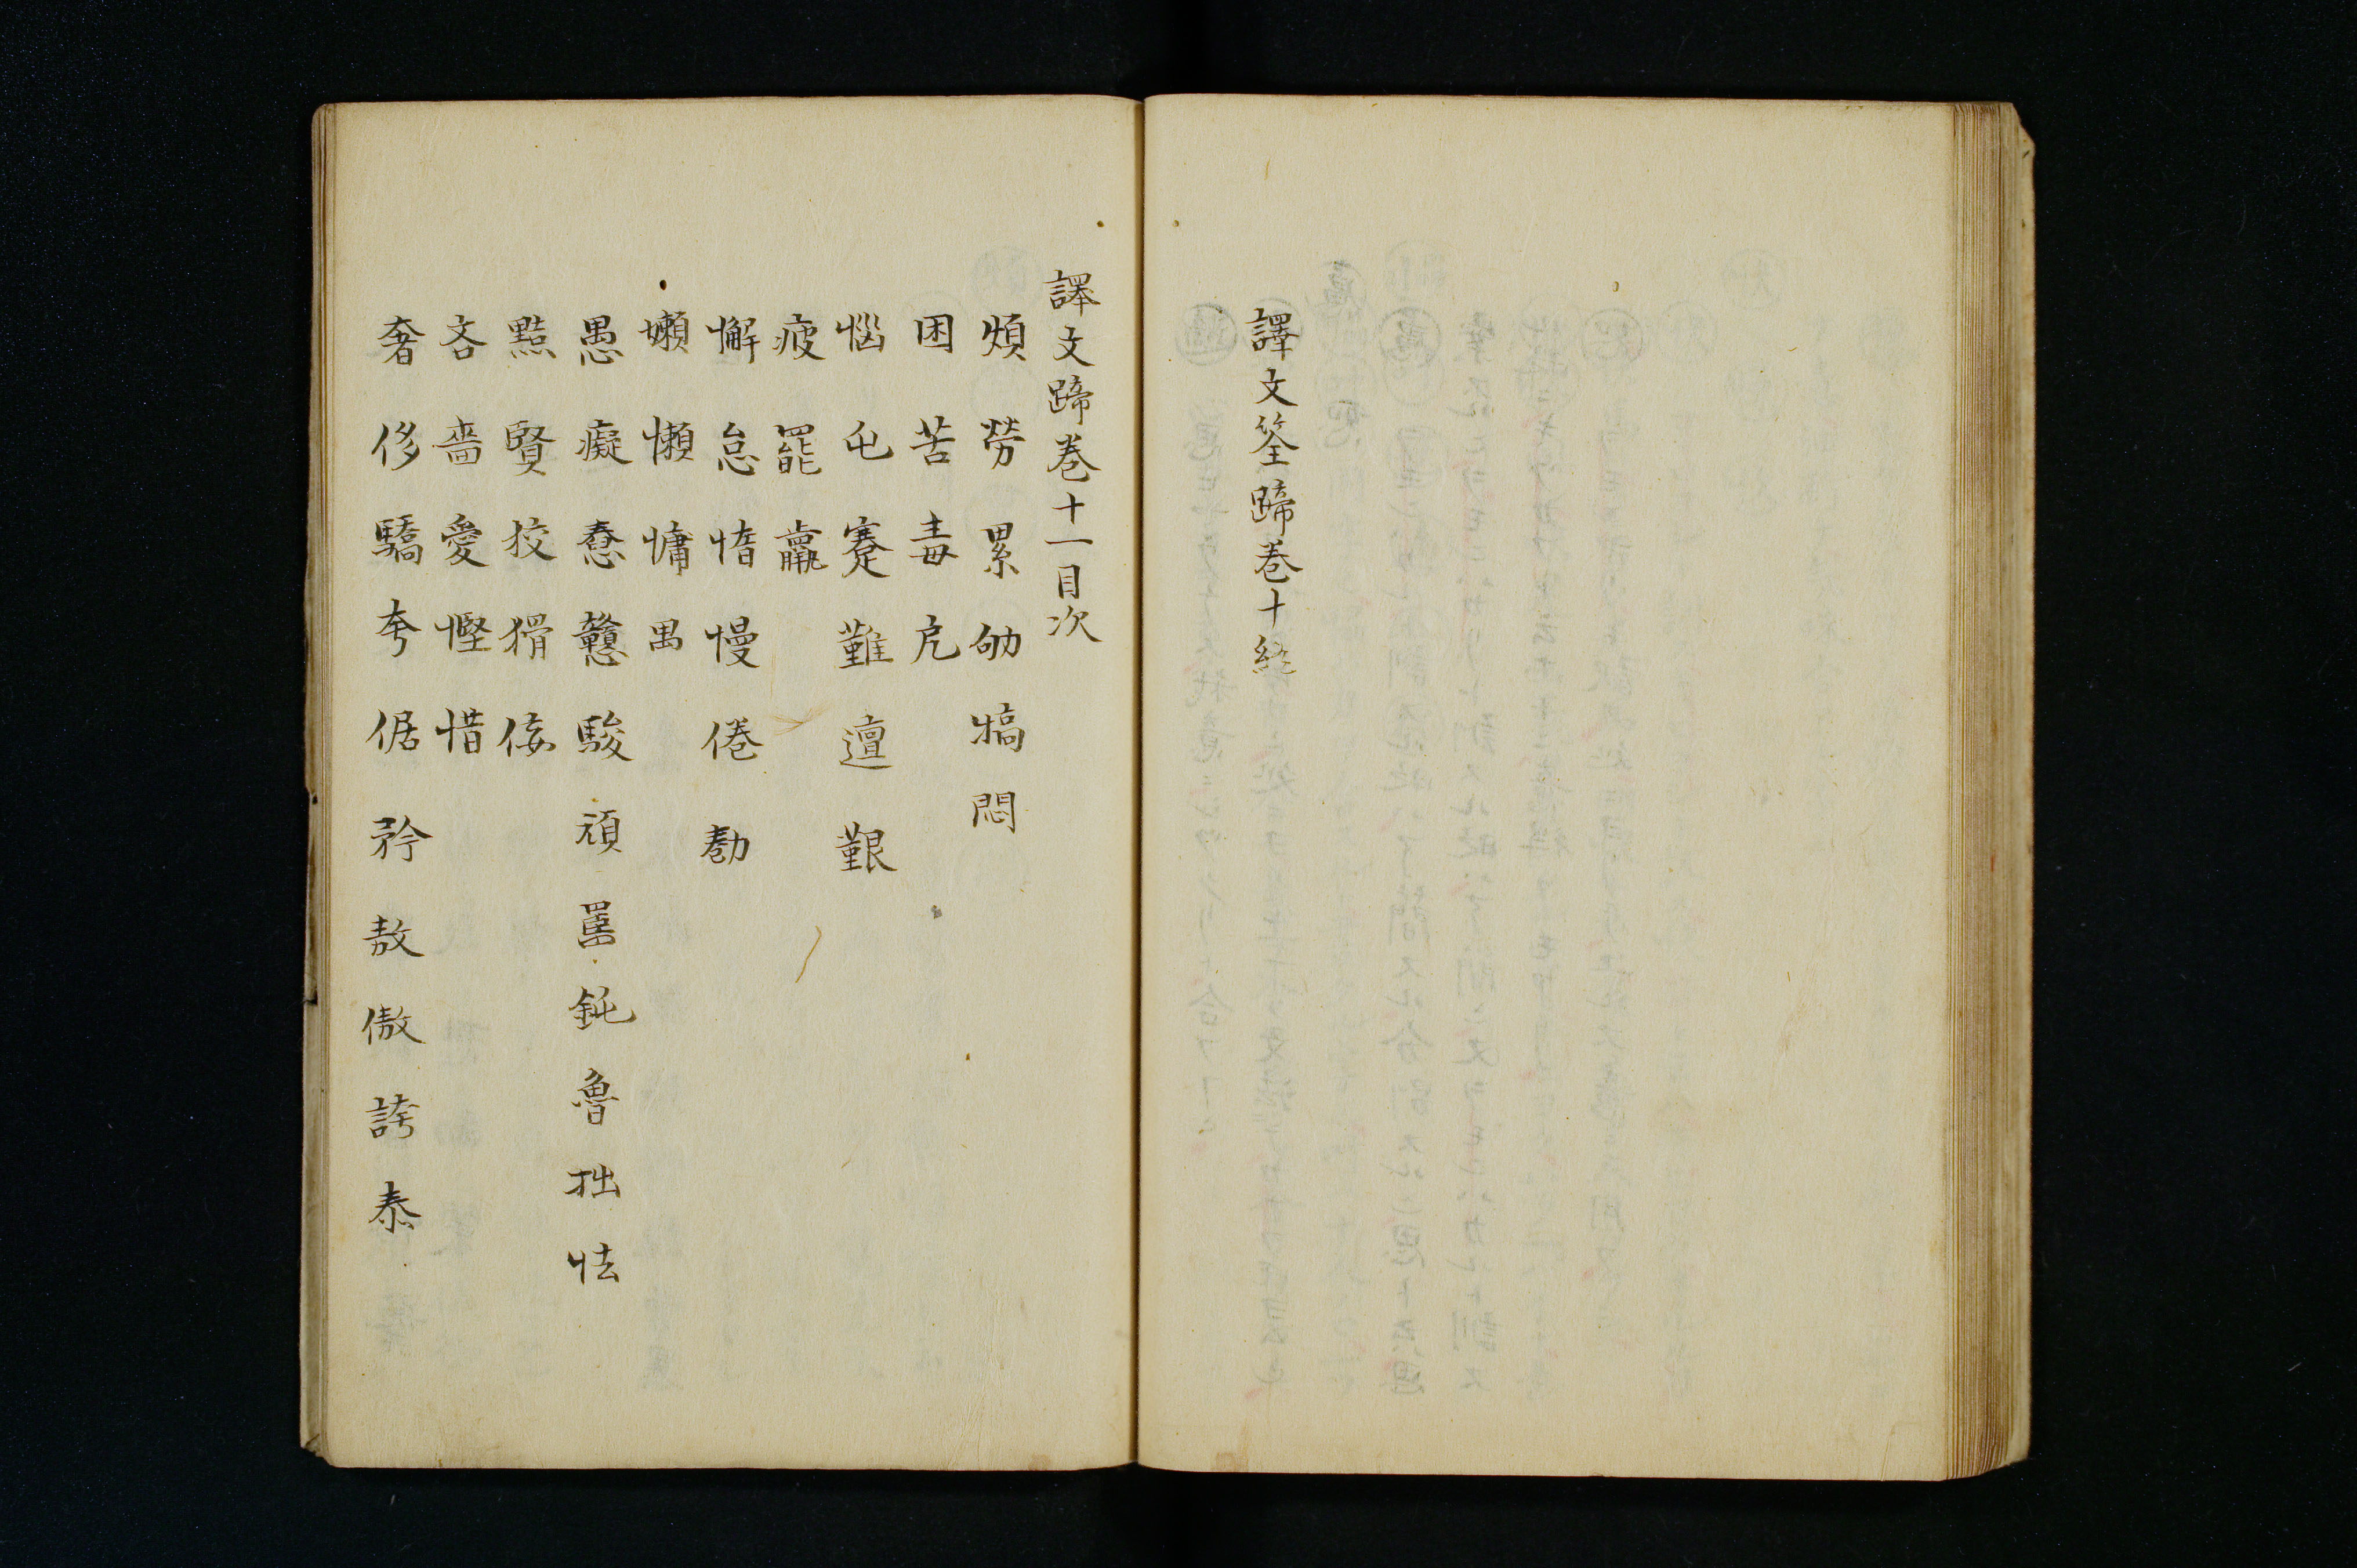 譯文筌蹄巻十終
譯文蹄巻十一目次
煩勞累劬犒悶
困苦毒戹
惱屯蹇難邅艱
疲罷羸
懈怠惰慢倦勌
嬾懶慵
愚癡惷戇騃頑嚚鈍魯拙怯
黠賢狡猾佞
吝嗇愛慳惜
奢侈驕夸倨矜敖傲誇泰